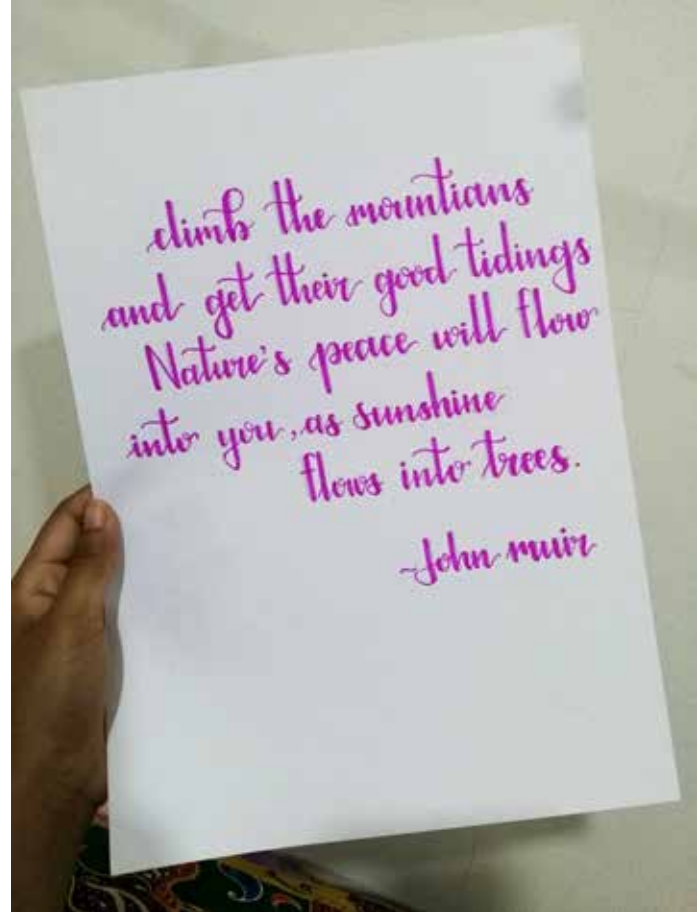 climb the mountians
and get their good tidings
Nature's peace will flow
into you, as sunshine
flows into trees.
~John muir